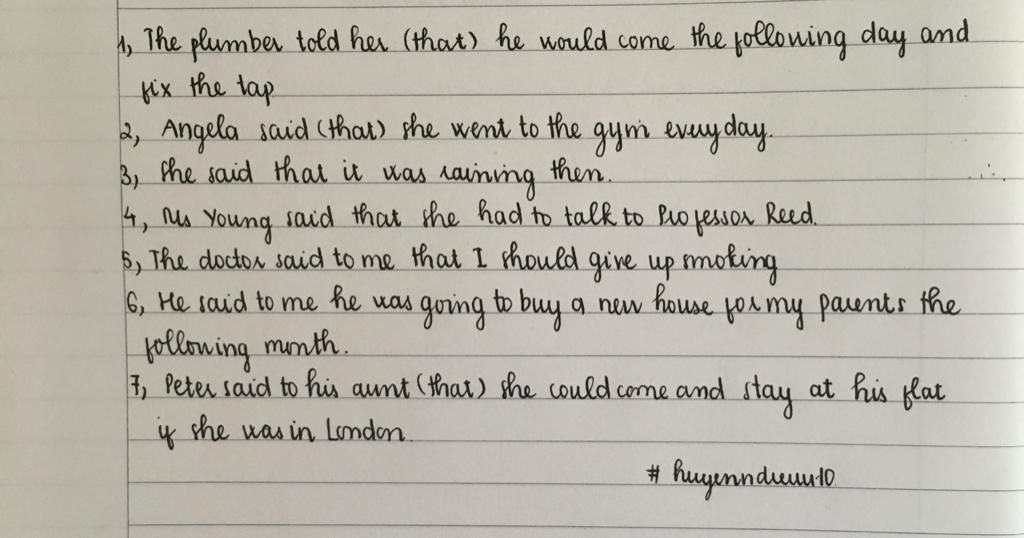 1, The plumber told her (that) he would come the following day and
fix the tap
2, Angela said (that) she went to the gym everyday.
3, She said that it was raining then.
4, Ms Young said that she had to talk to Professor Reed.
5, The doctor said to me that I should give up smoking
6, He said to me he was going to buy a new house for my parents the
following month.
7, Peter said to his aunt (that) she could come and stay at his flat
if she was in London.